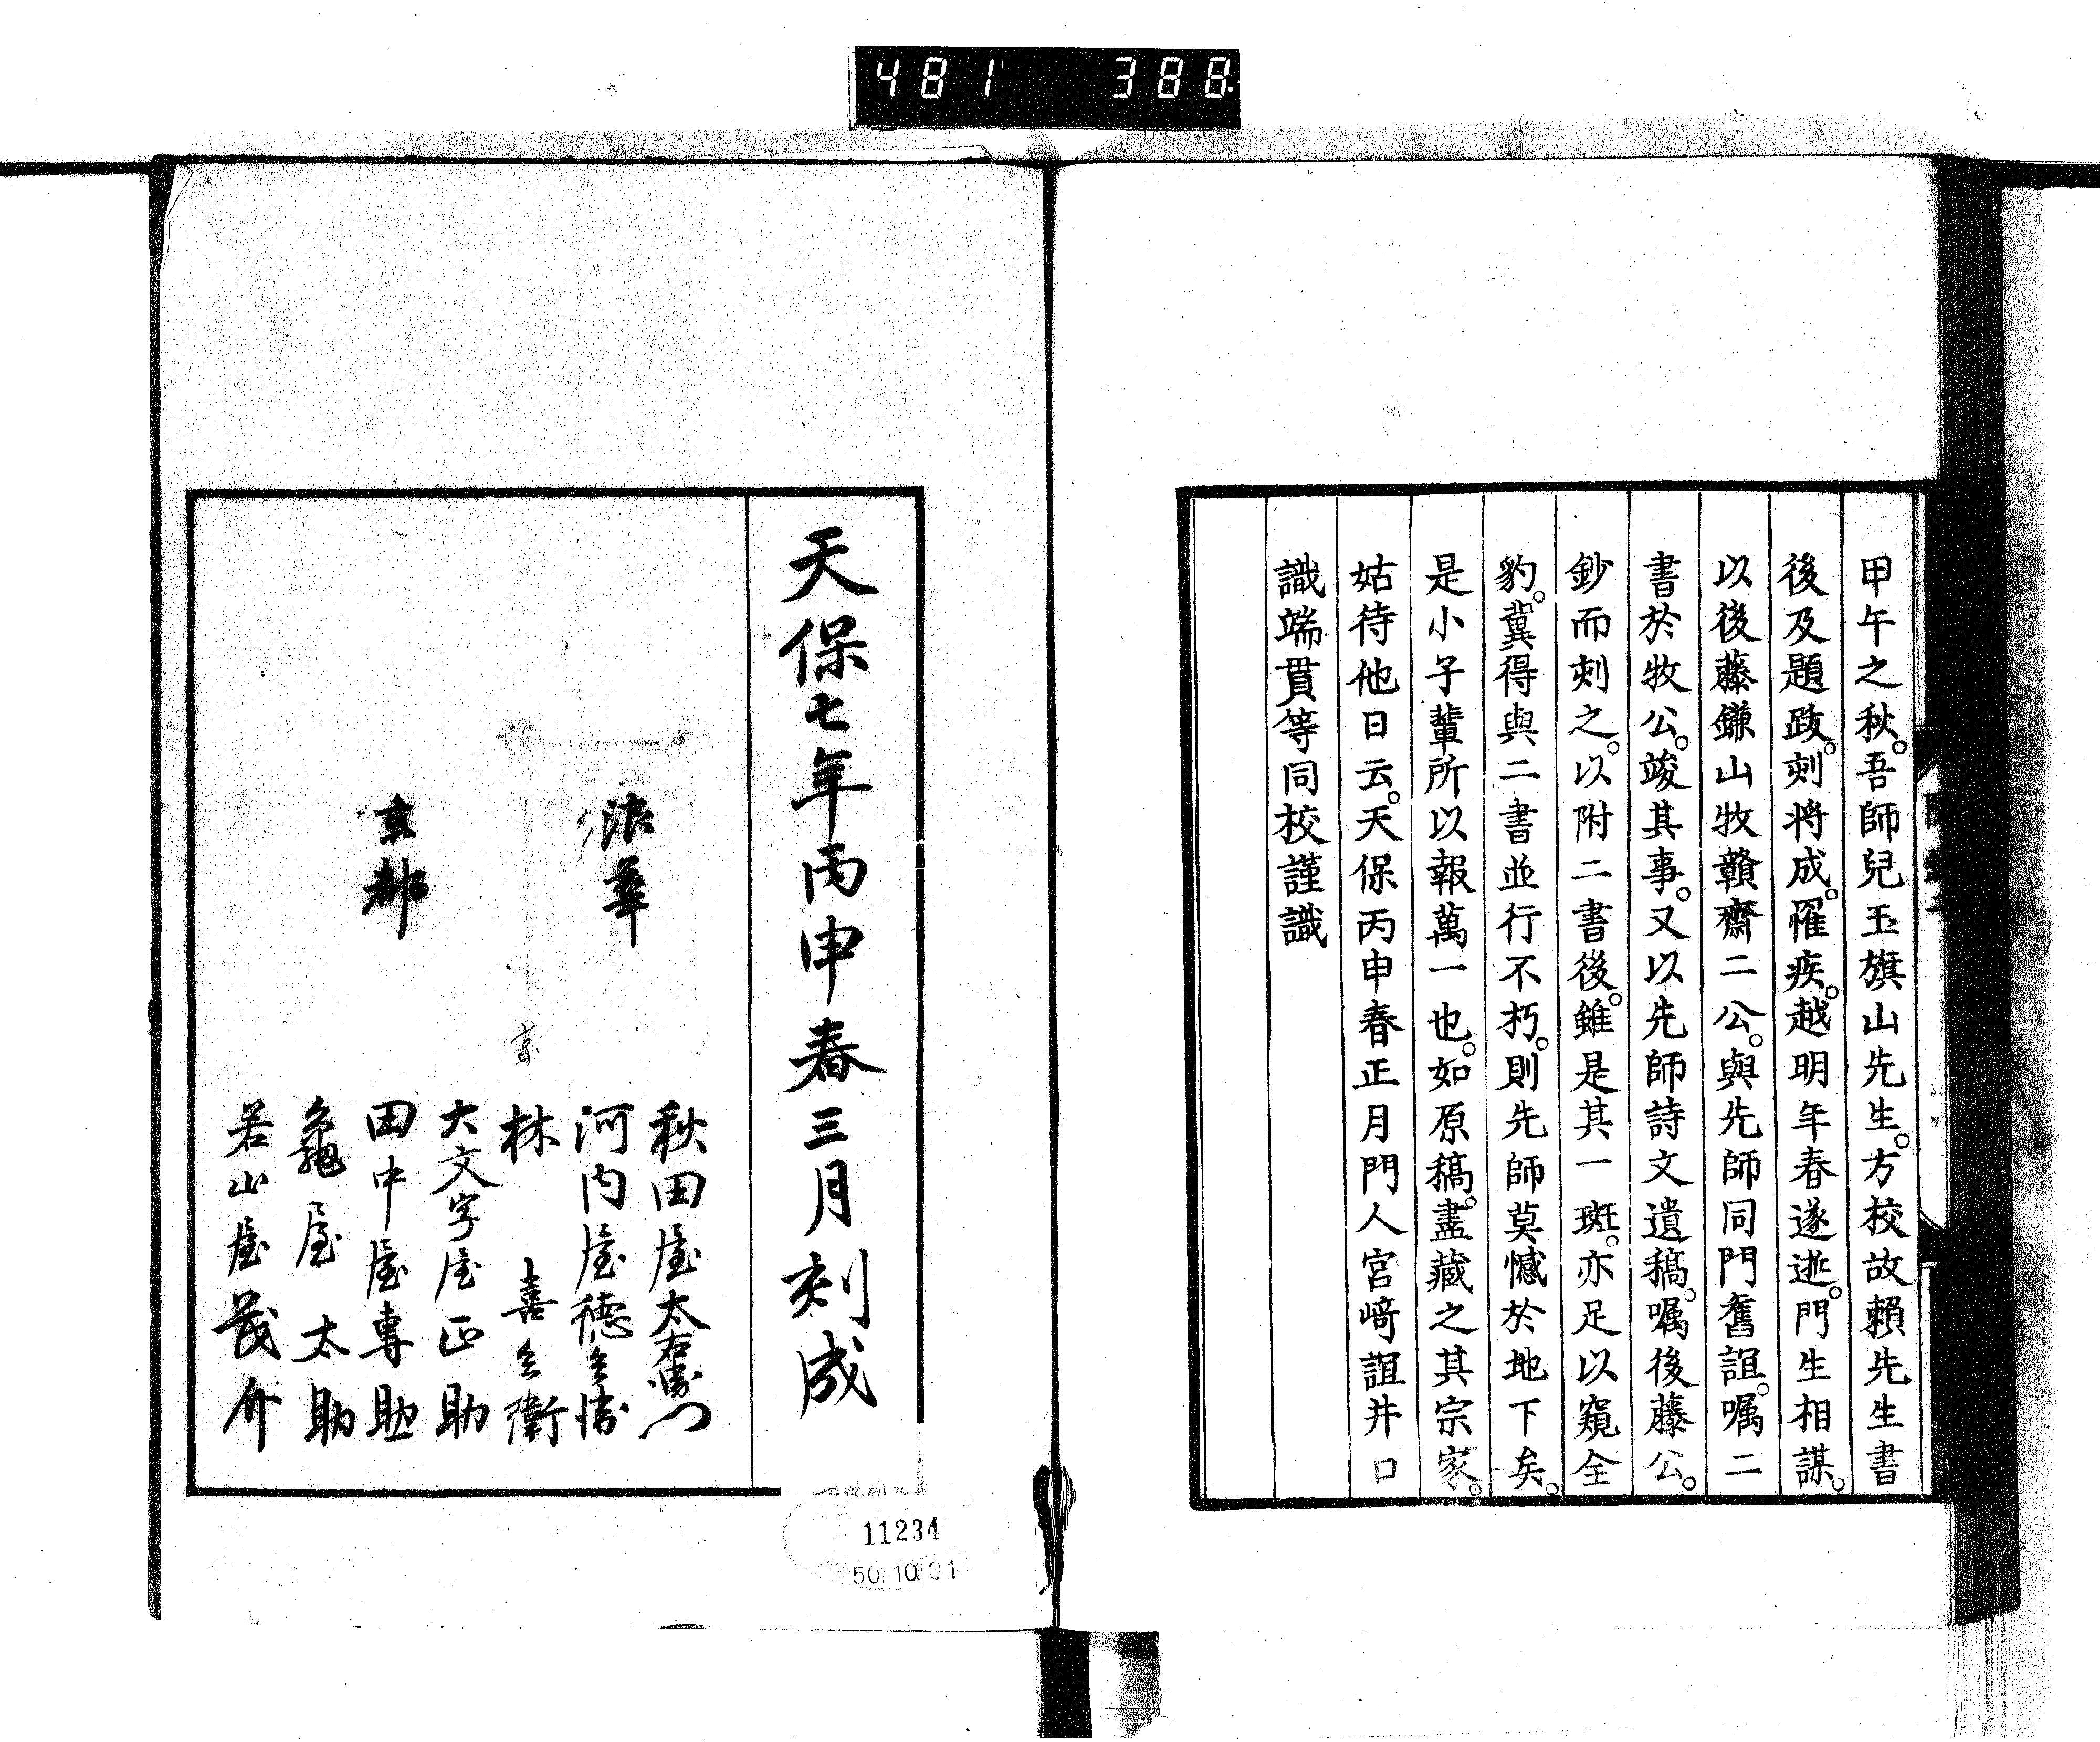 481 388
甲午之秋。吾師兒玉旗山先生。方校故賴先生書
後及題跋。刻将成。罹疾。越明年春遂逝。門生相謀。
以後藤鎌山牧贛齋二公。與先師同門舊誼。嘱二
書於牧公。竣其事。又以先師詩文遺稿。嘱後藤公。
鈔而刻之。以附二書後。雖是其一斑。亦足以窺全
豹。冀得與二書並行不朽。則先師莫憾於地下矣。
是小子輩所以報萬一也。如原稿。盡藏之其宗家。
姑待他日云。天保丙申春正月門人宮﨑誼井口
識端貫等同校謹識
天保七年丙申春三月刻成
浪華
秋田屋太右衛門
河内屋徳兵衛
林喜兵衛
京都
大文字屋正助
田中屋専助
龜屋太助
若山屋茂介
京
11234
50.10.31